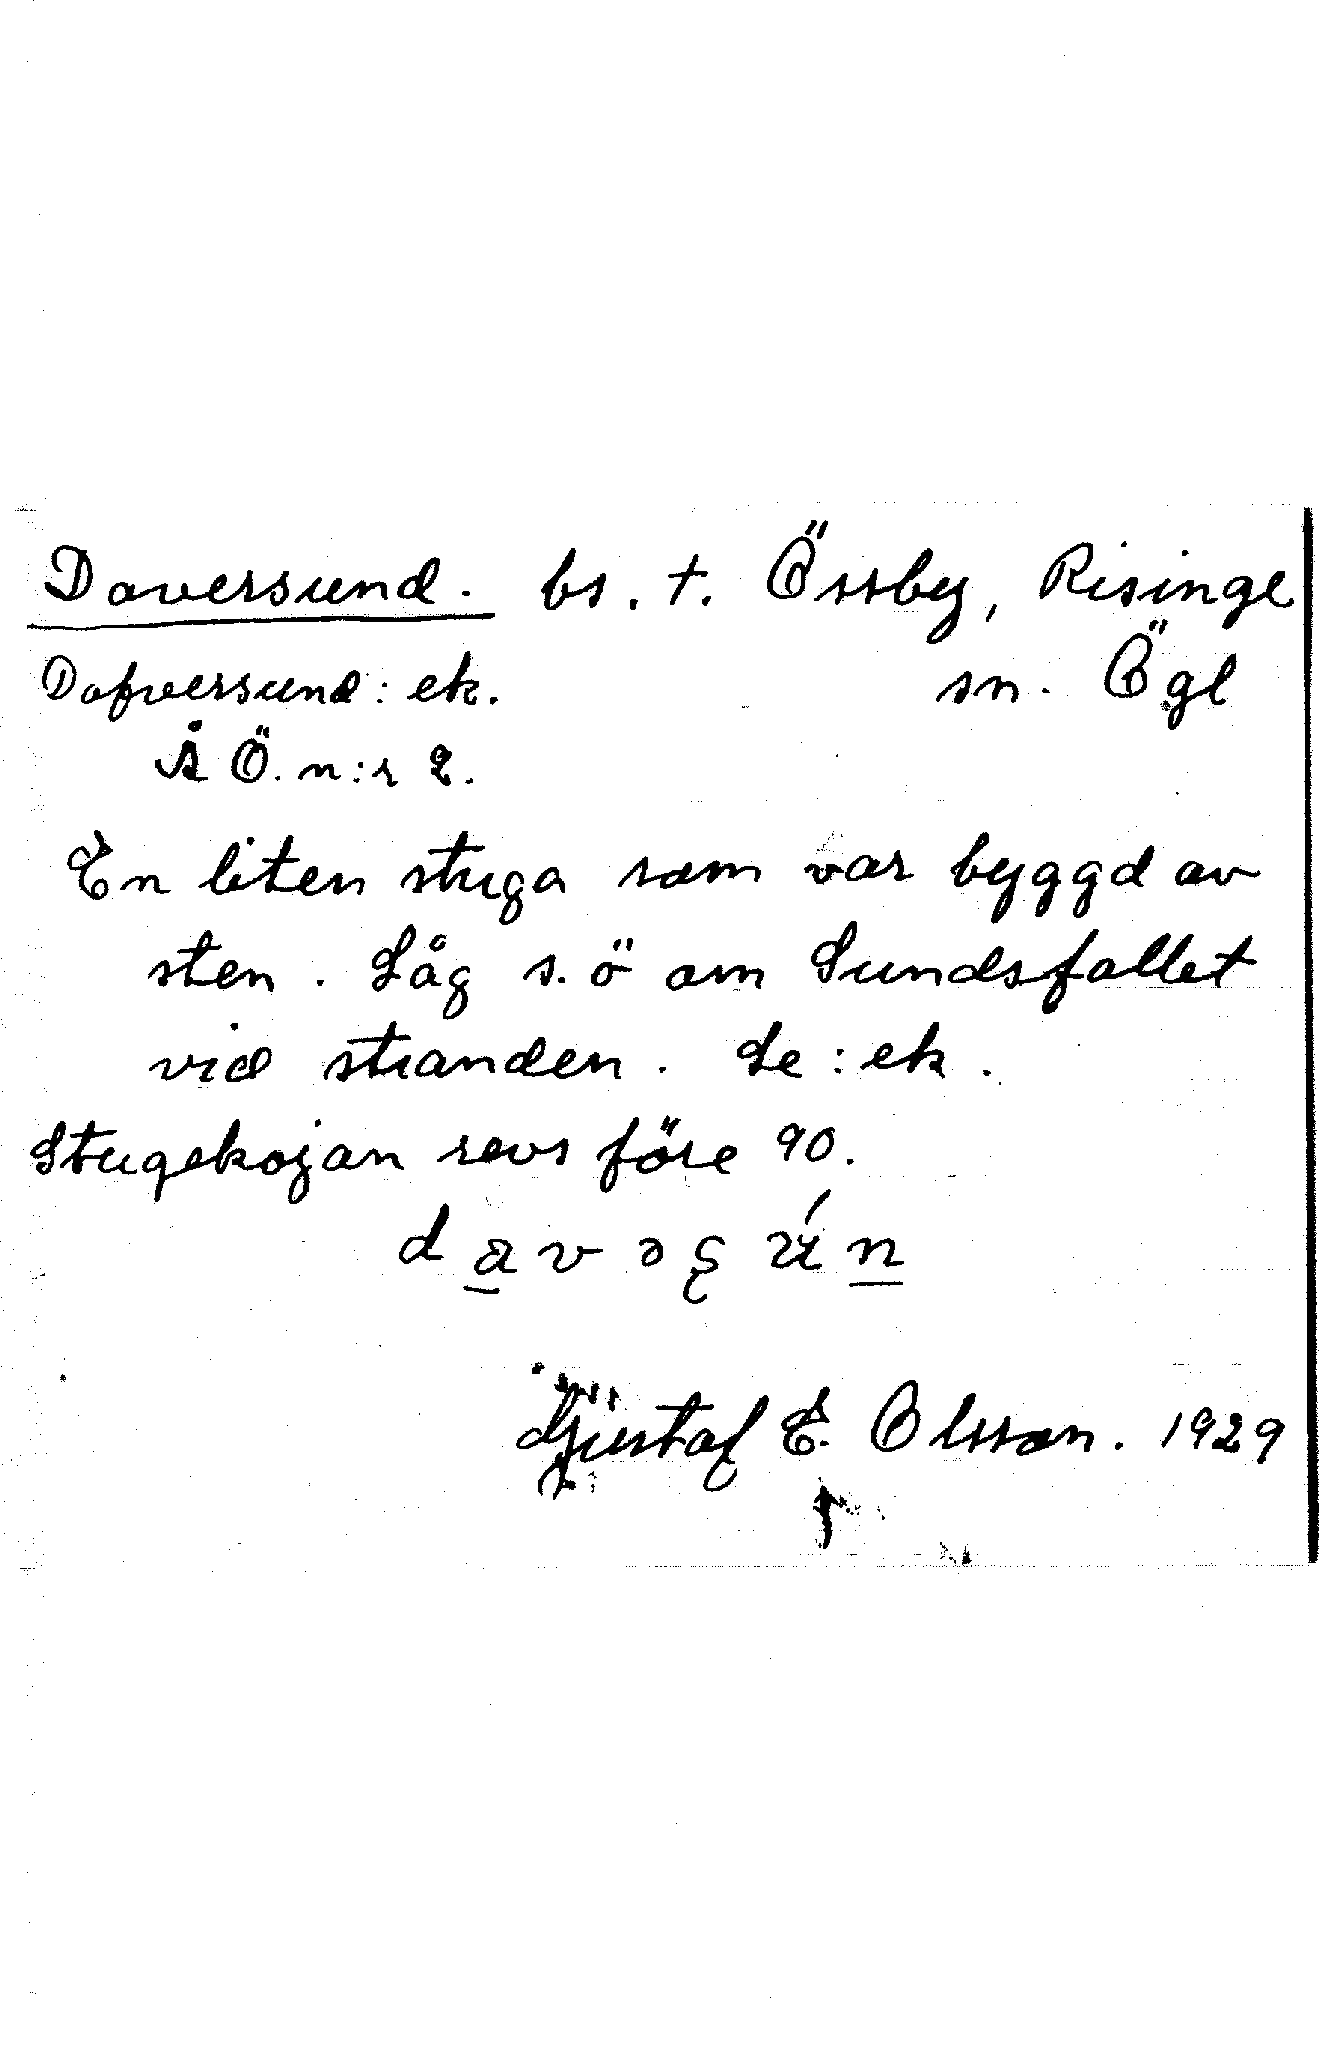 Daversund. bs. t. Össby, Risinge
Dafversund: ek. sn. Ögl
Å Ö. n:r 2.
En liten stuga som var byggd av
sten. Låg s. ö om Sundsfallet
vid stranden. Se: ek.
Stugekojan revs före 90.
Gustaf E. Olsson. 1929